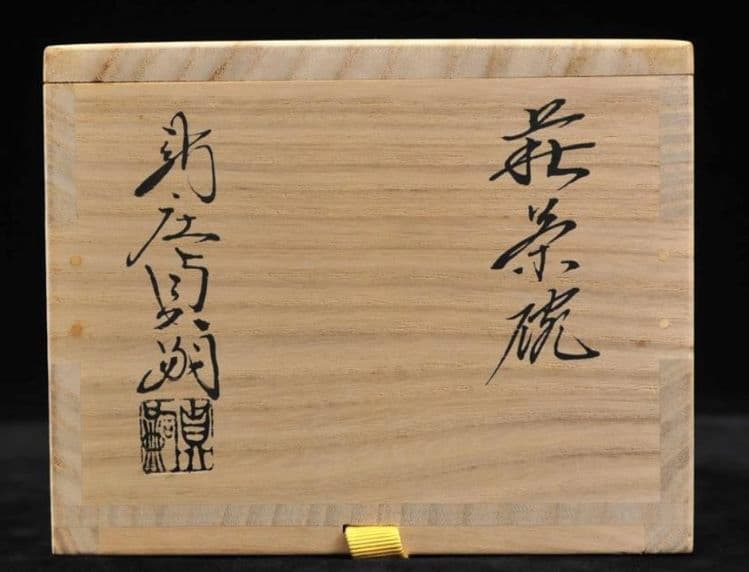 萩茶碗
新庄貞嗣